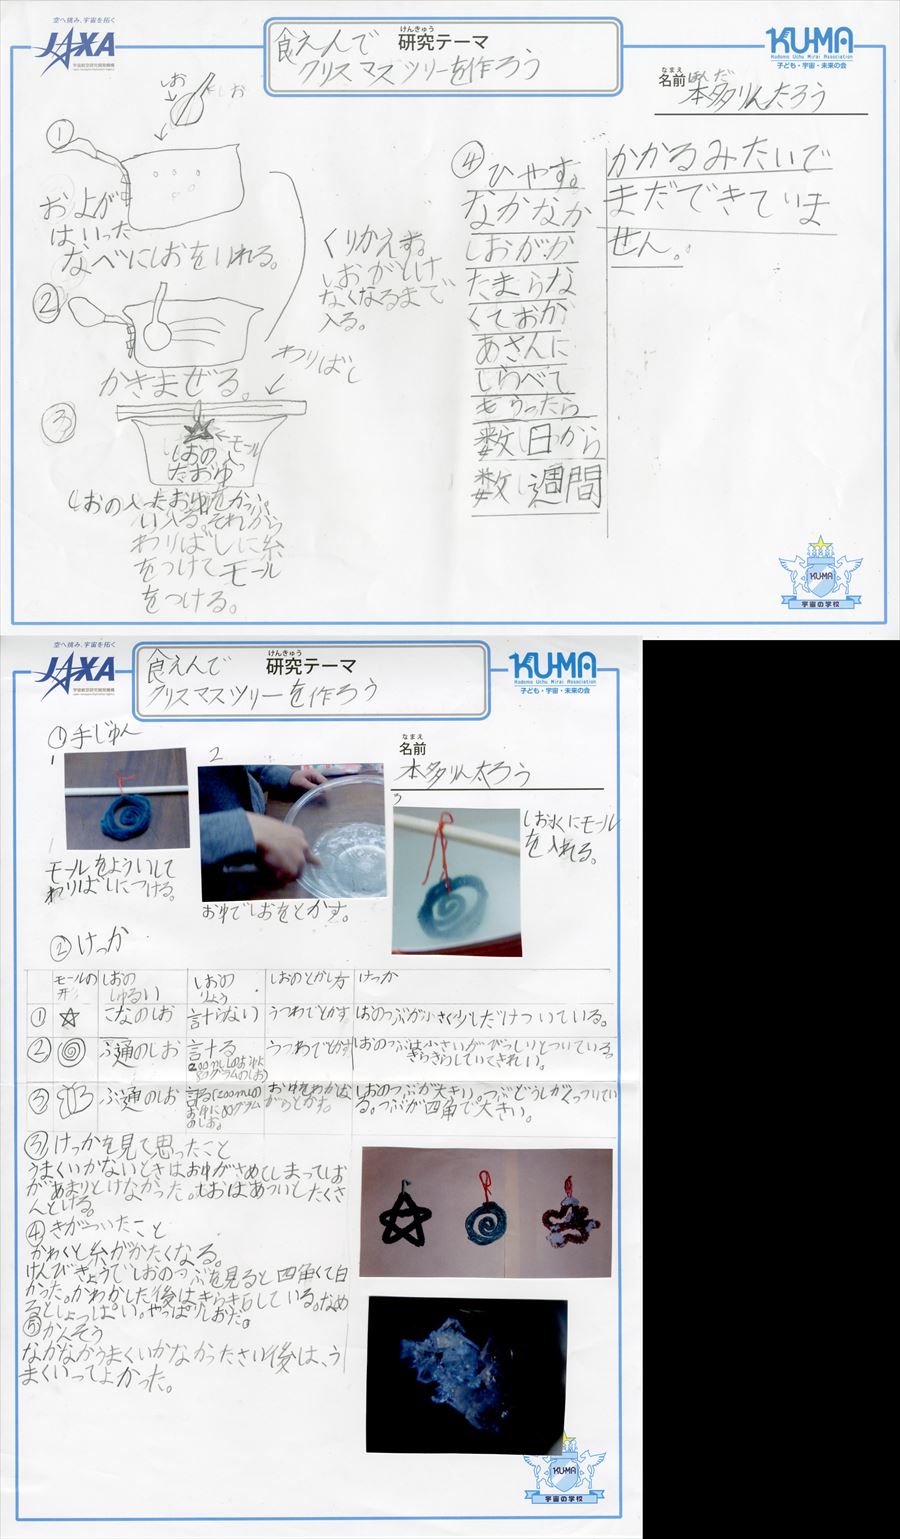 空へ挑み、宇宙を拓く
JAXA
宇宙航空研究開発機構
けんきゅう
研究テーマ
食えんで
クリスマスツリーを作ろう
KU-MA
Kodomo Uchu Mirai Association
子ども・宇宙・未来の会
なまえ
名前
ほんだ
本多りんたろう
しお
しお
①
おゆが
はいった
なべにしおをいれる。
②
かきまぜる。
くりかえす。
しおがとけ
なくなるまで
入る。
わりばし
③
モール
しおの入っ
たおゆ
しおの入ったおゆをかっぷ
い入る。それから
わりばしに糸
をつけてモール
をつける。
④
ひやす。
なかなか
しおがか
たまらな
くておか
あさんに
しらべて
もらったら
数日から
数週間
かかるみたいで
まだできていま
せん。
KU-MA
宇宙の学校
空へ挑み、宇宙を拓く
JAXA
宇宙航空研究開発機構
けんきゅう
研究テーマ
食えんで
クリスマスツリーを作ろう
KU-MA
Kodomo Uchu Mirai Association
子ども・宇宙・未来の会
なまえ
名前
本多りん太ろう
①手じゅん
1
モールをよういして
わりばしにつける。
2
お湯でしおをとかす。
3
しお水にモール
を入れる。
②けっか
モールの形 しおのしゅるい しおのりょう しおのとかし方 けっか
① こなのしお 計らない うつわでとかす しおのつぶが小さく少しだけついている。
② ふ通のしお 計する うつわでとかす しおのつぶは小さいがびっしりとついている。
(200mLのお湯に80グラムのしお) きらきらしていてきれい。
③ ふ通のしお 計る(200mLのお湯に80グラムのしお。 お湯をわかしながらとかす。 しおのつぶが大きい。つぶどうしがくっついている。つぶが四角で大きい。
③けっかを見て思ったこと
うまくいかないときはお湯がさめてしまってしお
があまりとけなかった。しおはあついとたくさ
んとける。
④きがついたこと
かわくと糸がかたくなる。
けんびきょうでしおのつぶを見ると四角くて白
かった。かわかした後はきらきらしている。なめ
るとしょっぱい。やっぱりしおだ。
⑤かんそう
なかなかうまくいかなかったさい後は、う
まくいってよかった。
KU-MA
宇宙の学校